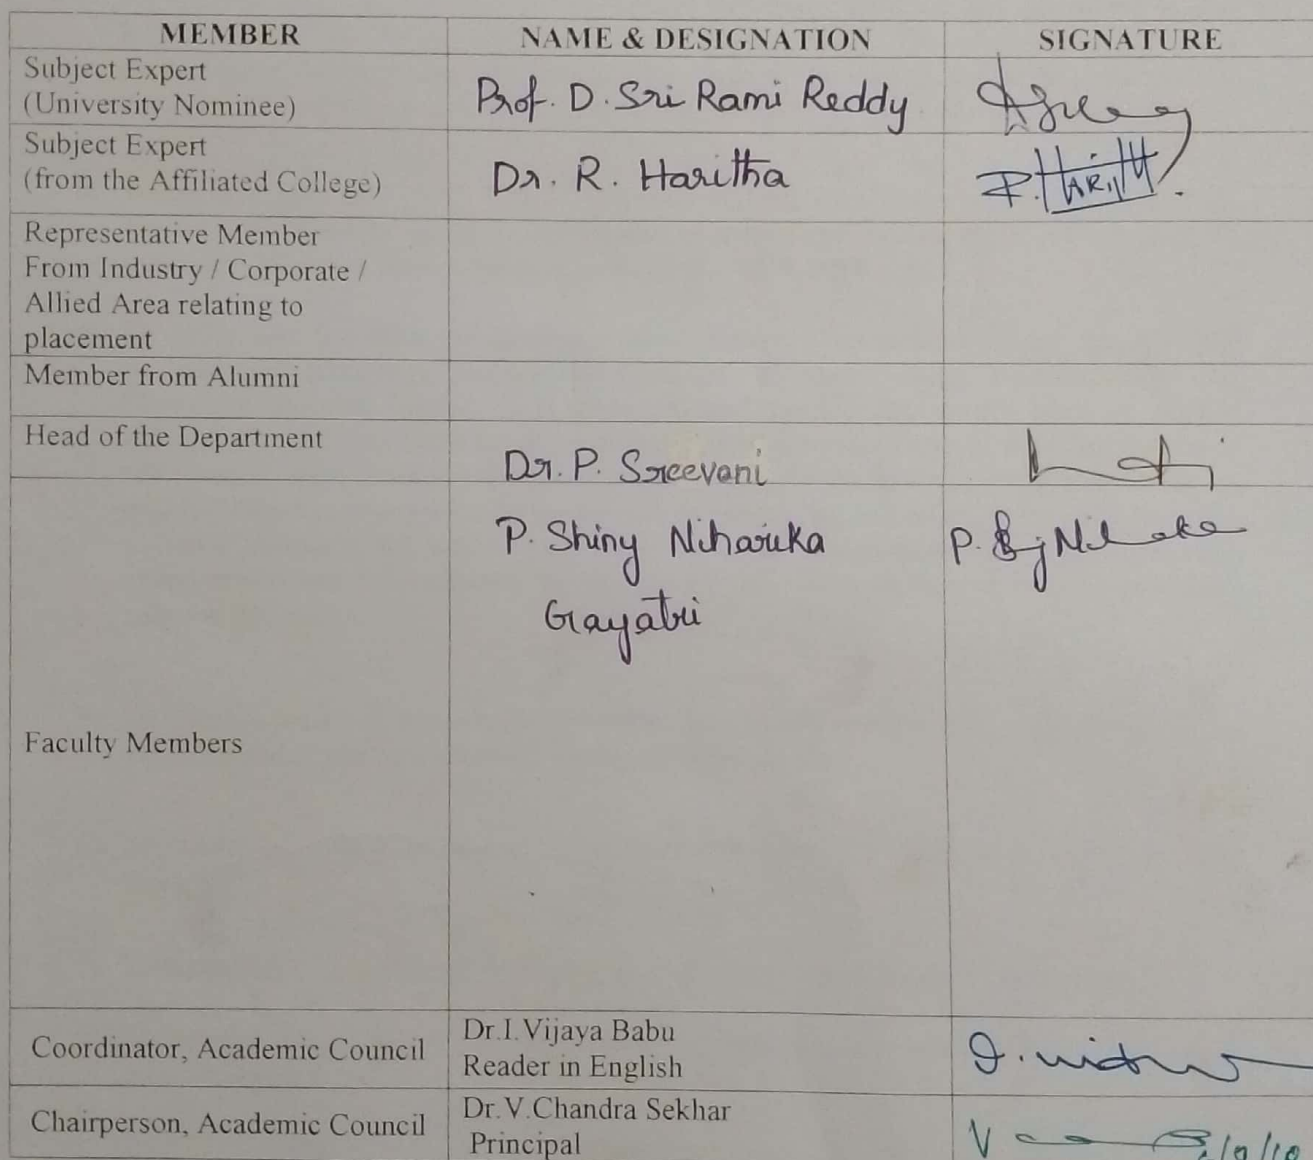 MEMBER NAME & DESIGNATION SIGNATURE
Subject Expert
(University Nominee)
Prof. D. Sri Rami Reddy
Subject Expert
(from the Affiliated College)
Dr. R. Haritha
Representative Member
From Industry / Corporate /
Allied Area relating to
placement
Member from Alumni
Head of the Department
Dr. P. Sreevani
Faculty Members
P. Shiny Niharika
Gayatri
Coordinator, Academic Council
Dr.I.Vijaya Babu
Reader in English
Chairperson, Academic Council
Dr.V.Chandra Sekhar
Principal